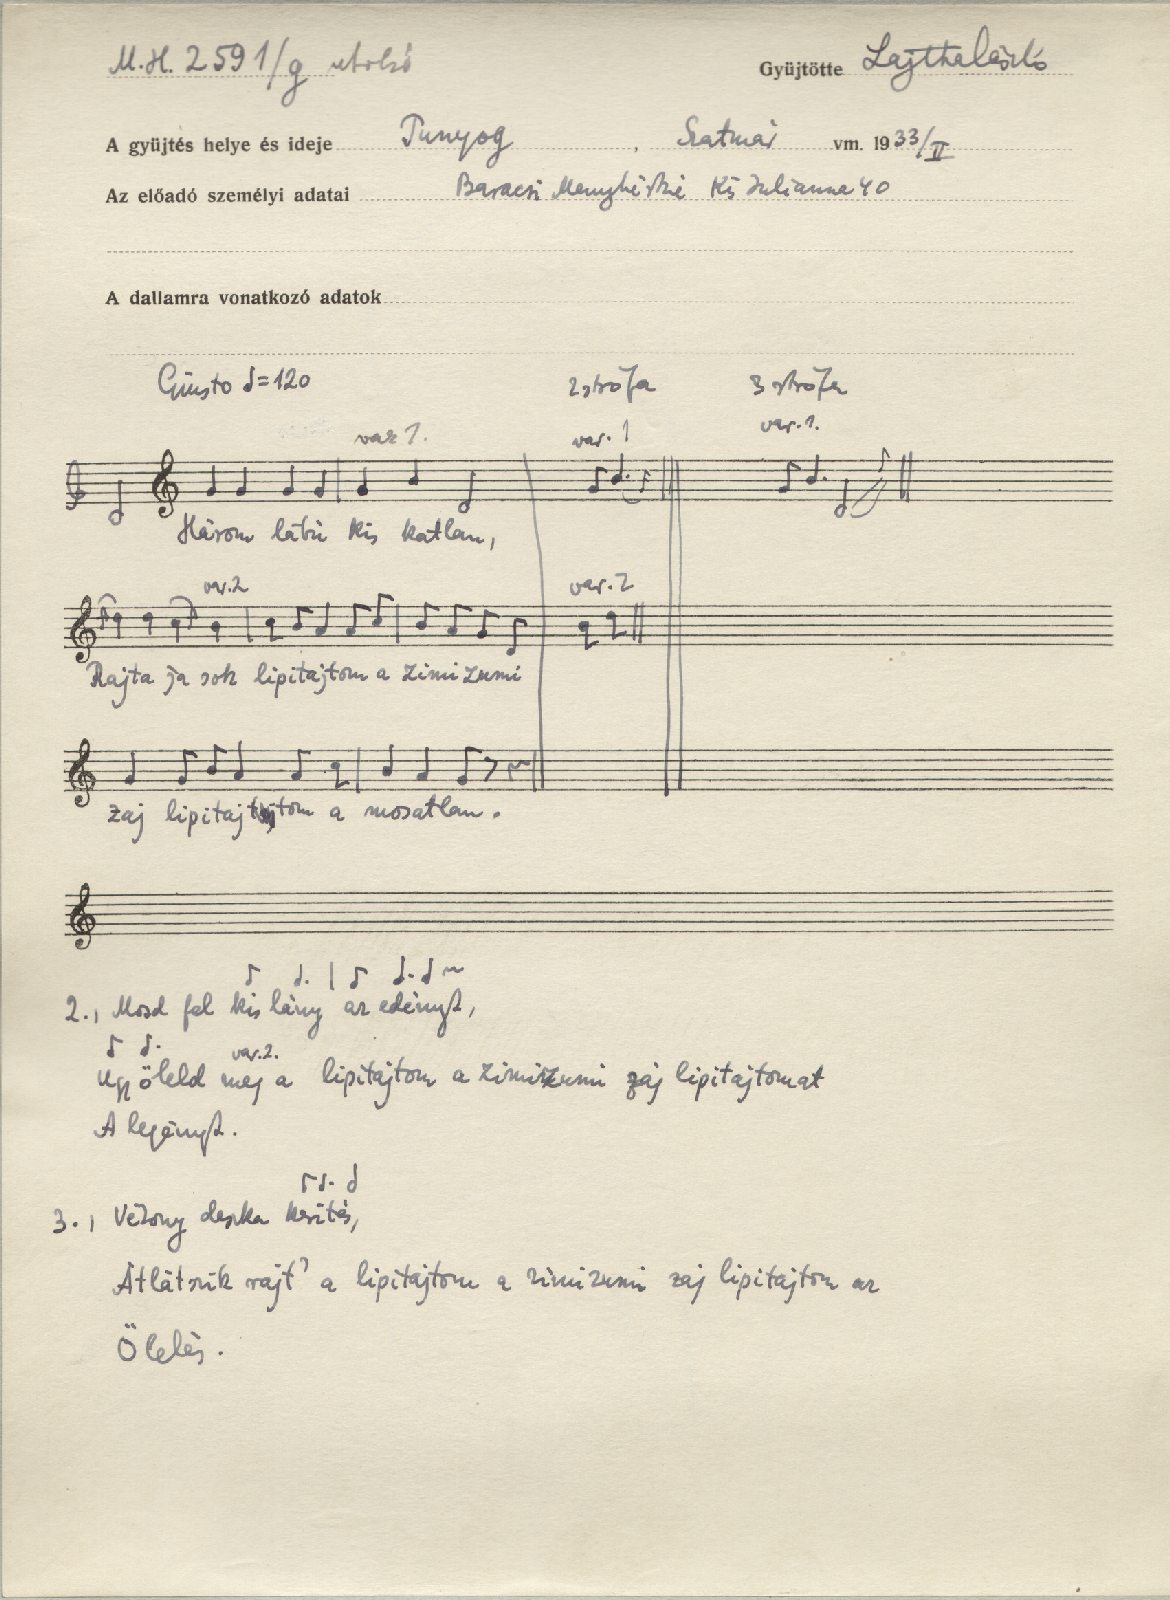 M.H. 2591/g utolsó
Gyüjtötte Lajtha László
A gyüjtés helye és ideje Tunyog, Szatmár vm. 1933/II
Az előadó személyi adatai Baracsi Menyhértné Kis Julianna 40
A dallamra vonatkozó adatok
Giusto = 120 2 strófa 3 strófa
var 1. var. 1 var. 1.
Három lábú kis katlan,
var. 2 var. 2
Rajta ja sok lipitajtom a zimizumi
zaj lipitajtom a mosatlan.
2., Mosd fel kis lány az edényt,
var. 2.
Ugy öleld meg a lipitajtom a zimizumi zaj lipitajtomat
A legényt.
3., Vékony deszka kerítés,
Átlátszik rajt' a lipitajtom a zimizumi zaj lipitajtom az
Ölelés.